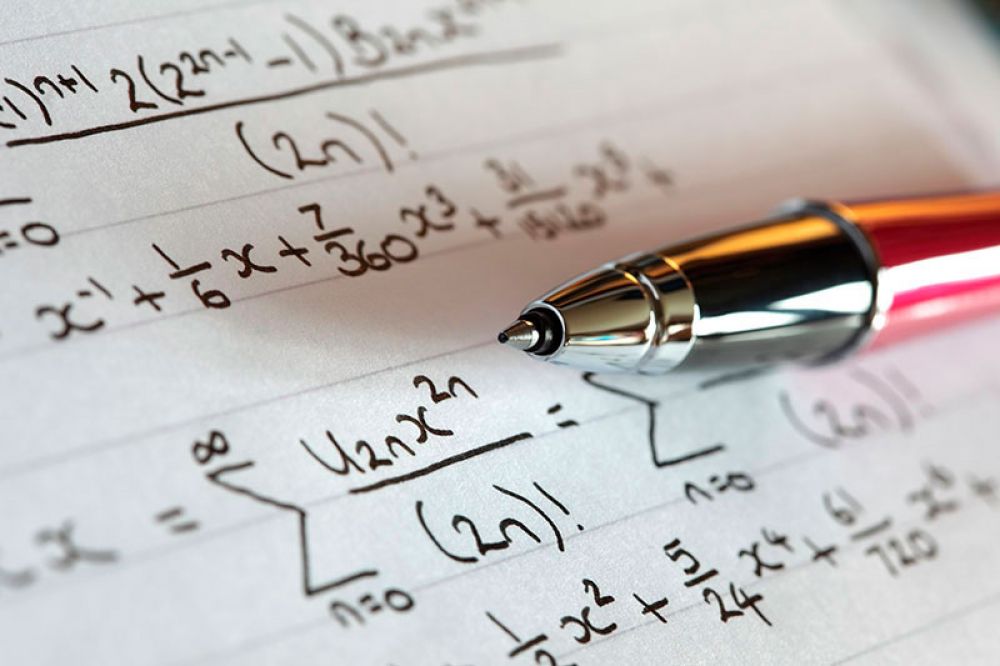 1)ⁿ⁺¹ 2(2²ⁿ⁻¹ -1) B₂ₙx²ⁿ
(2n)!
=0
x⁻¹ + 1/6 x + 7/360 x³ + 31/15120 x⁵ +
x = ∞ Σ n=0 U₂ₙx²ⁿ/(2n)! = Σ n=0 (2n)!
1/2 x² + 5/24 x⁴ + 61/720 x⁶ +